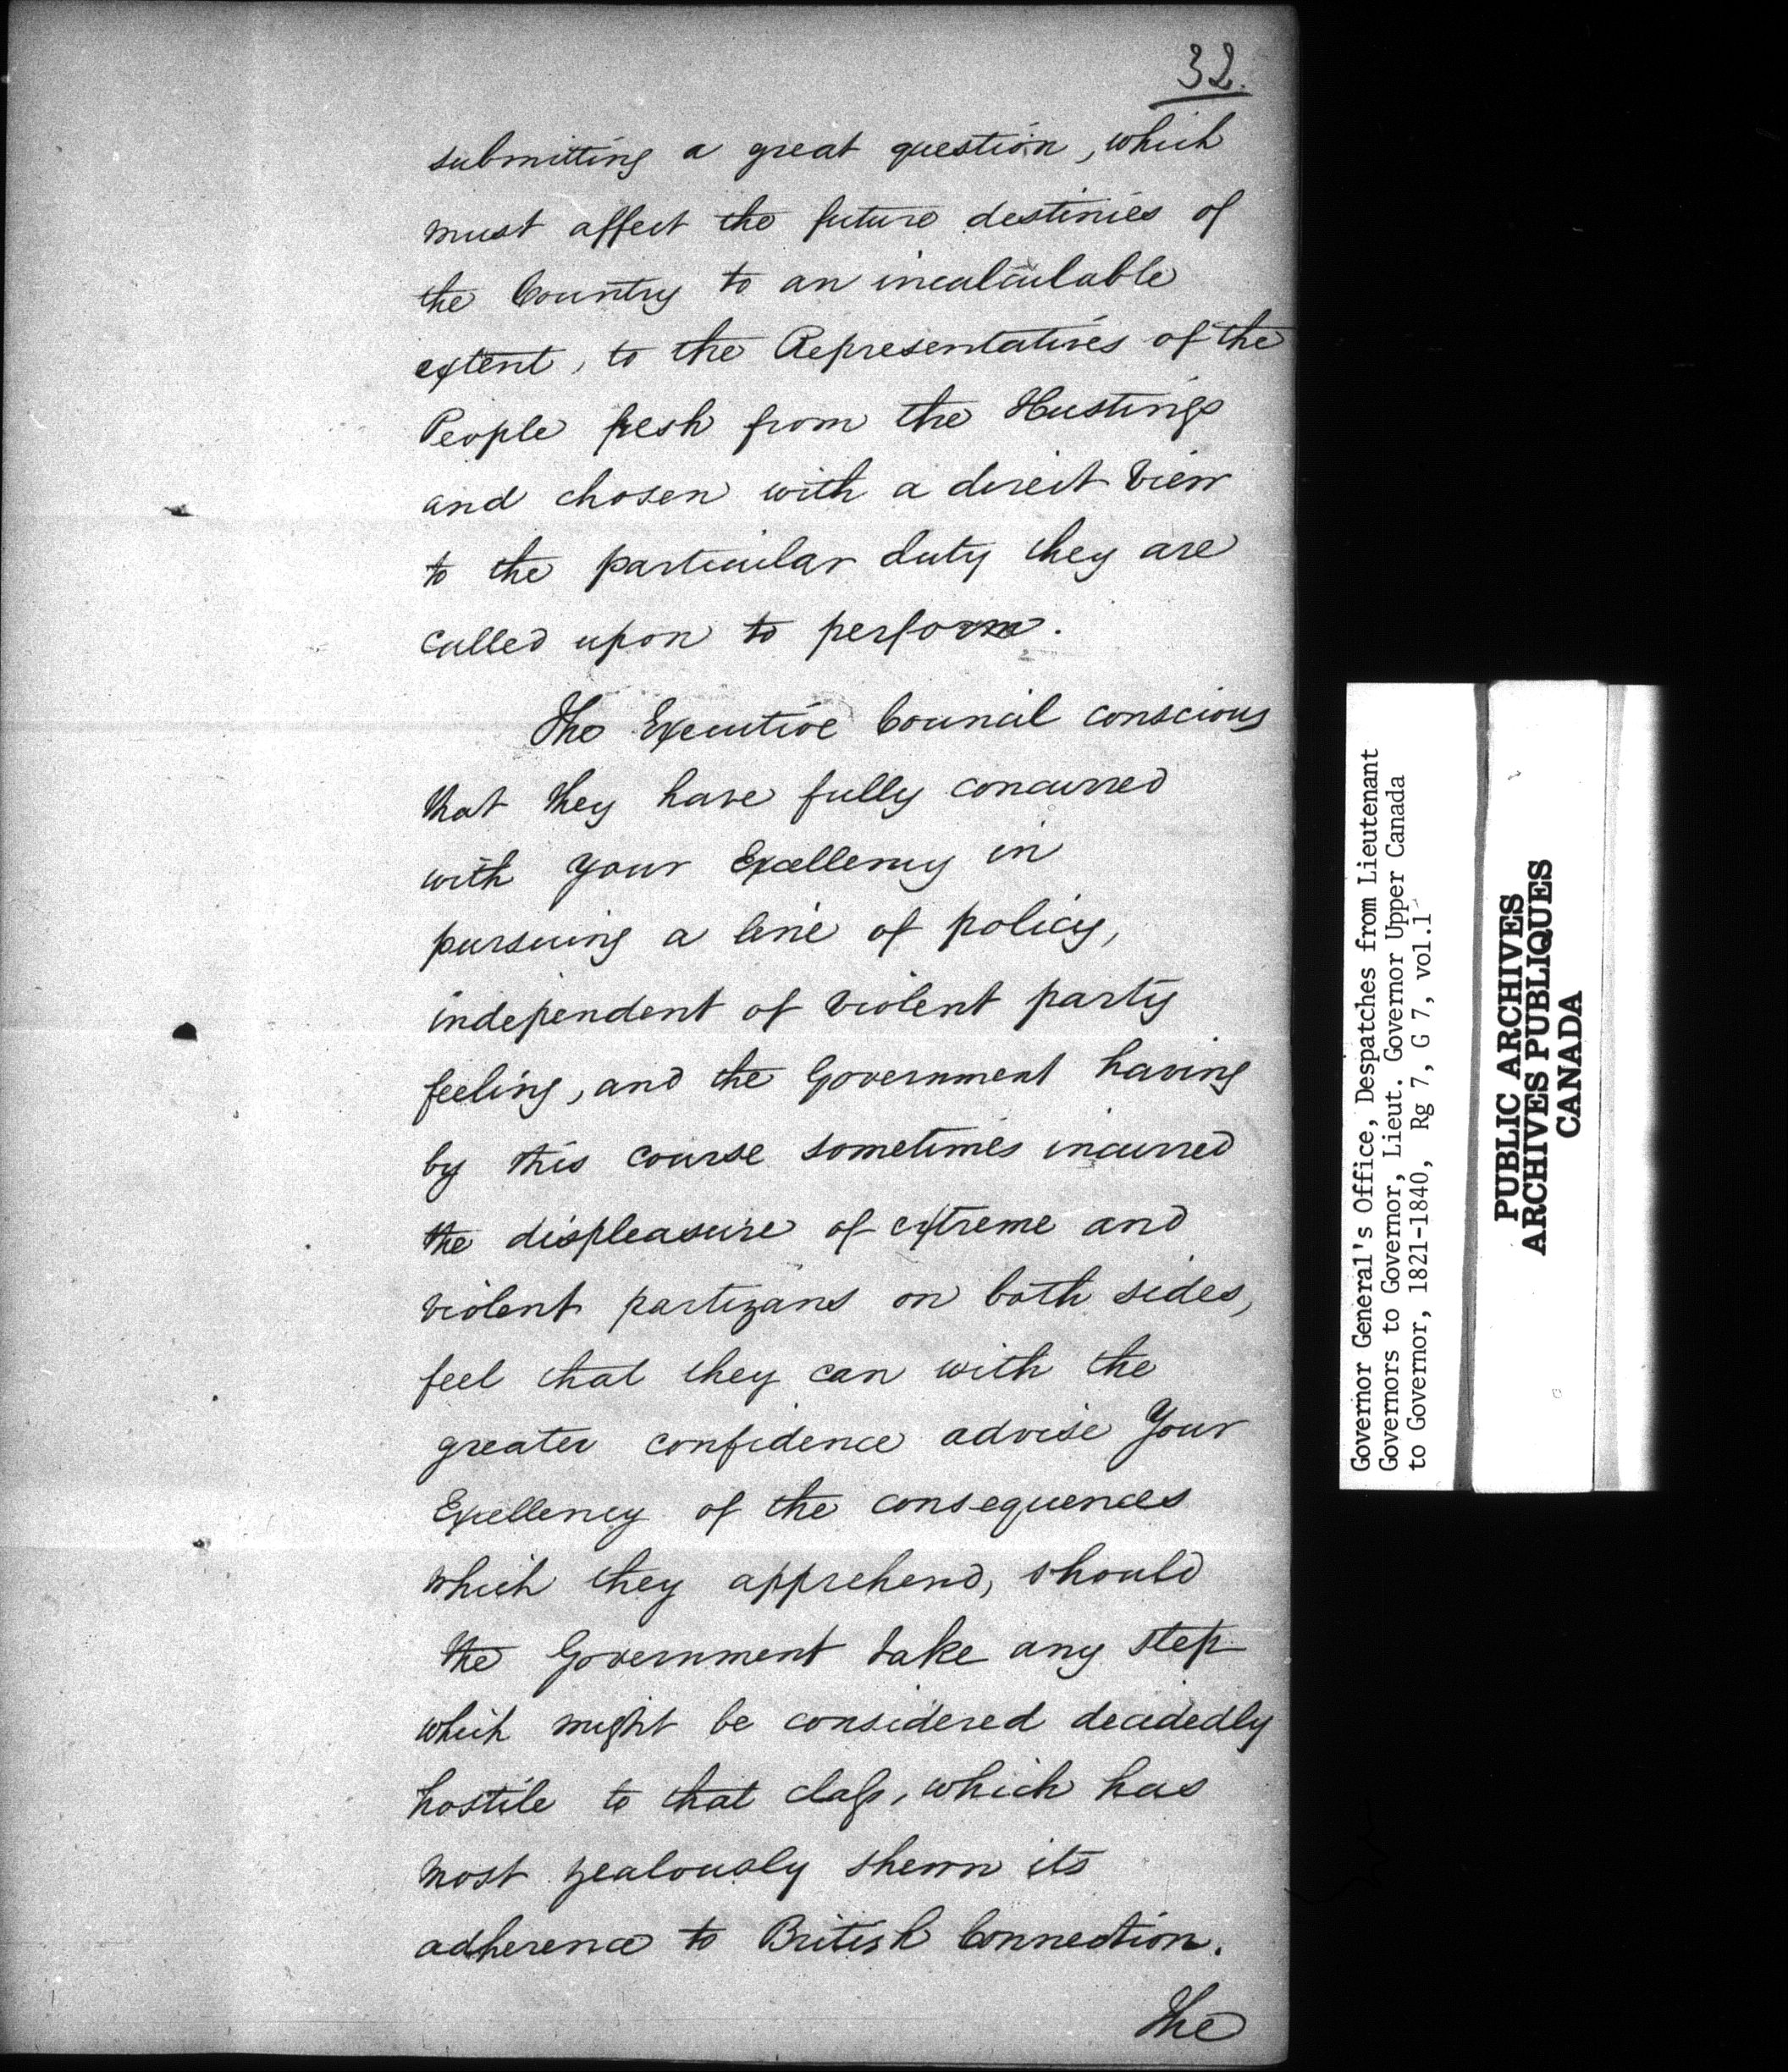 32.
submitting a great question, which
must affect the future destinies of
the Country to an incalculable
extent, to the Representatives of the
People fresh from the Hustings
and chosen with a direct view
to the particular duty they are
called upon to perform.
The Executive Council conscious
that they have fully concurred
with Your Excellency in
pursuing a line of policy,
independent of violent party
feeling, and the Government having
by this course sometimes incurred
the displeasure of extreme and
violent partizans on both sides,
feel that they can with the
greater confidence advise Your
Excellency of the consequences
which they apprehend, should
the Government take any step
which might be considered decidedly
hostile to that claſs, which has
most zealously shewn its
adherence to British Connection.
The
Governor General's Office, Despatches from Lieutenant
Governors to Governor, Lieut. Governor Upper Canada
to Governor, 1821-1840, Rg 7, G 7, vol.1
PUBLIC ARCHIVES
ARCHIVES PUBLIQUES
CANADA